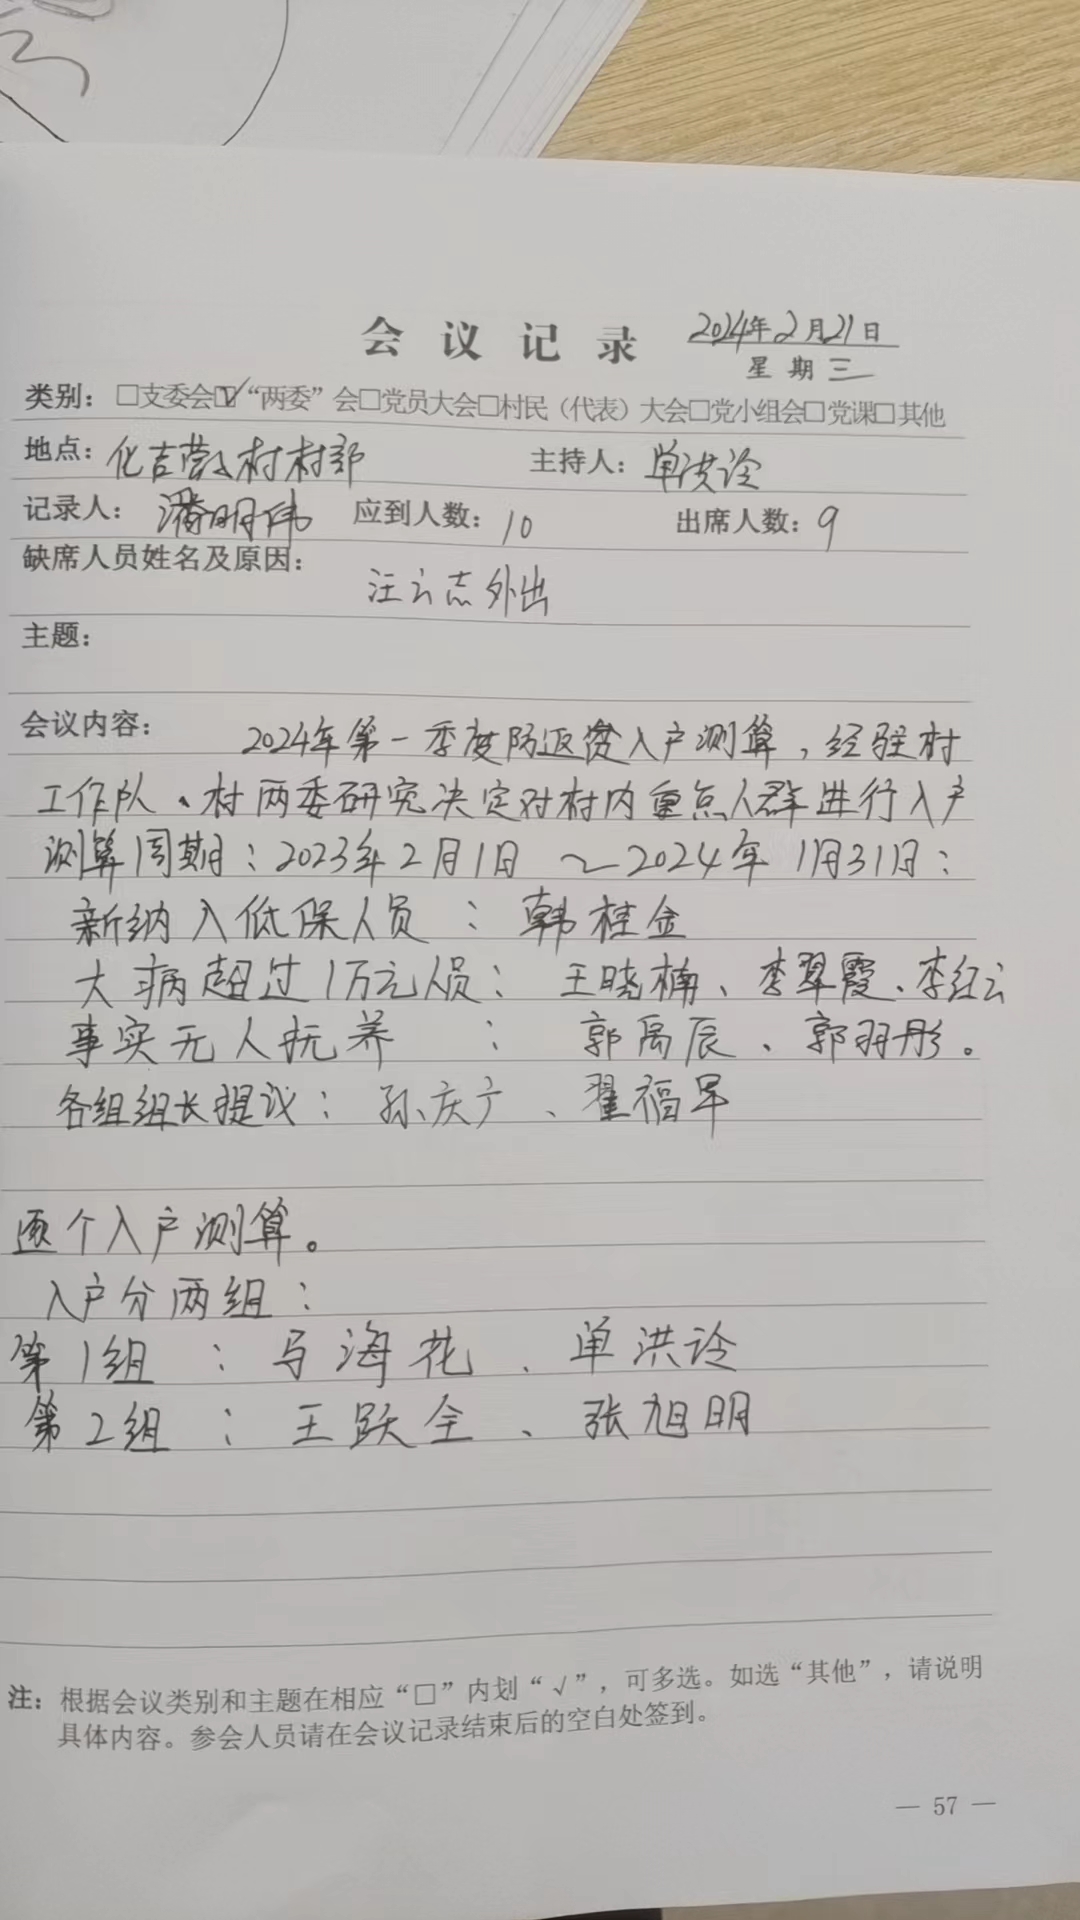 会议记录 2024年2月21日
星期三
类别：□支委会☑“两委”会□党员大会□村民（代表）大会□党小组会□党课□其他
地点：化吉营村村部 主持人：单洪玲
记录人：潘明伟 应到人数：10 出席人数：9
缺席人员姓名及原因：
汪云志外出
主题：
会议内容： 2024年第一季度防返贫入户测算，经驻村
工作队、村两委研究决定对村内重点人群进行入户
测算周期：2023年2月1日～2024年1月31日：
新纳入低保人员：韩桂金
大病超过1万元人员：王晓楠、李翠霞、李红云
事实无人抚养：郭禹辰、郭羽彤。
各组组长提议：孙庆广、翟福军
逐个入户测算。
入户分两组：
第1组：马海花、单洪玲
第2组：王跃全、张旭明
注：根据会议类别和主题在相应“□”内划“√”，可多选。如选“其他”，请说明
具体内容。参会人员请在会议记录结束后的空白处签到。
— 57 —